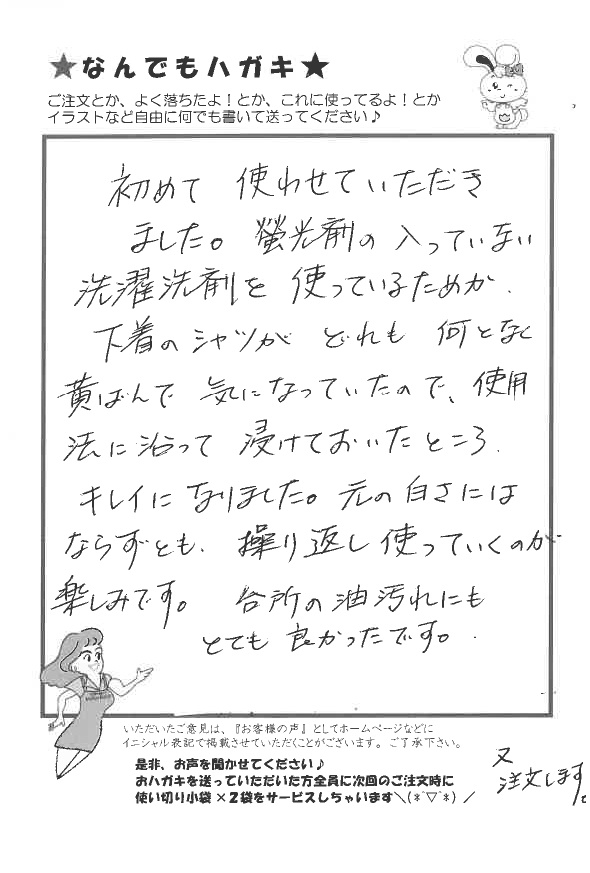 ★なんでもハガキ★
ご注文とか、よく落ちたよ！とか、これに使ってるよ！とか
イラストなど自由に何でも書いて送ってください♪
初めて 使わせていただき
ました。螢光剤の入っていない
洗濯洗剤を 使っているためか、
下着のシャツが どれも 何となく
黄ばんで 気になっていたので、使用
法に沿って 浸けておいたところ、
キレイに なりました。元の白さには
ならずとも、繰り返し使っていくのが
楽しみです。 台所の油汚れにも
とても 良かったです。
いただいたご意見は、『お客様の声』としてホームページなどに
イニシャル表記で掲載させていただくことがございます。ご了承下さい。
是非、お声を聞かせてください♪
おハガキを送っていただいた方全員に次回のご注文時に
使い切り小袋×２袋をサービスしちゃいます＼(*ﾟ▽ﾟ*)／
又
注文します。